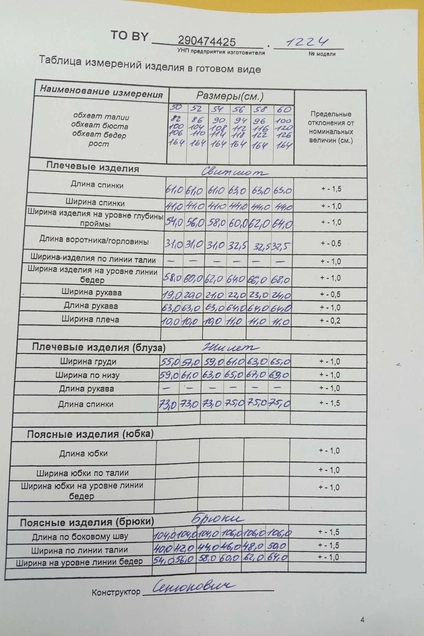 TO BY 290474425 . 1224
УНП предприятия изготовителя № модели
Таблица измерений изделия в готовом виде
Наименование измерения Размеры(см.) Предельные отклонения от номинальных величин (см.)
50 52 54 56 58 60
обхват талии 82 86 90 94 96 100
обхват бюста 100 104 108 112 116 120
обхват бедер 106 110 114 118 122 126
рост 164 164 164 164 164 164
Плечевые изделия Свитшот
Длина спинки 61,0 61,0 61,0 63,0 63,0 63,0 + - 1,5
Ширина спинки 41,0 44,0 44,0 44,0 + - 1,0
Ширина изделия на уровне глубины проймы 54,0 56,0 58,0 60,0 62,0 64,0 + - 1,0
Длина воротника/горловины 31,0 31,0 31,0 32,5 32,5 32,5 + - 0,5
Ширина-изделия по линии талии – – – – – – + - 1,0
Ширина изделия на уровне линии бедер 58,0 60,0 62,0 64,0 66,0 68,0 + - 1,0
Ширина рукава 19,0 20,0 21,0 22,0 23,0 24,0 + - 0,5
Длина рукава 63,0 63,0 63,0 64,0 64,0 64,0 + - 1,0
Ширина плеча 10,0 10,0 10,0 11,0 11,0 11,0 + - 0,2
Плечевые изделия (блуза) Жилет
Ширина груди 55,0 57,0 59,0 61,0 63,0 65,0 + - 1,0
Ширина по низу 59,0 61,0 63,0 65,0 67,0 69,0 + - 1,0
Длина рукава – – – – – – + - 1,0
Длина спинки 73,0 73,0 73,0 75,0 75,0 75,0 + - 1,5
Поясные изделия (юбка)
Длина юбки + - 1,0
Ширина юбки по талии + - 1,0
Ширина юбки на уровне линии бедер + - 1,0
Поясные изделия (брюки) Брюки
Длина по боковому шву 104,0 104,0 104,0 106,0 106,0 106,0 + - 1,5
Ширина по линии талии 40,0 42,0 44,0 46,0 48,0 50,0 + - 1,5
Ширина на уровне линии бедер 54,0 56,0 58,0 60,0 62,0 64,0 + - 1,0
Конструктор Сенюкович
4